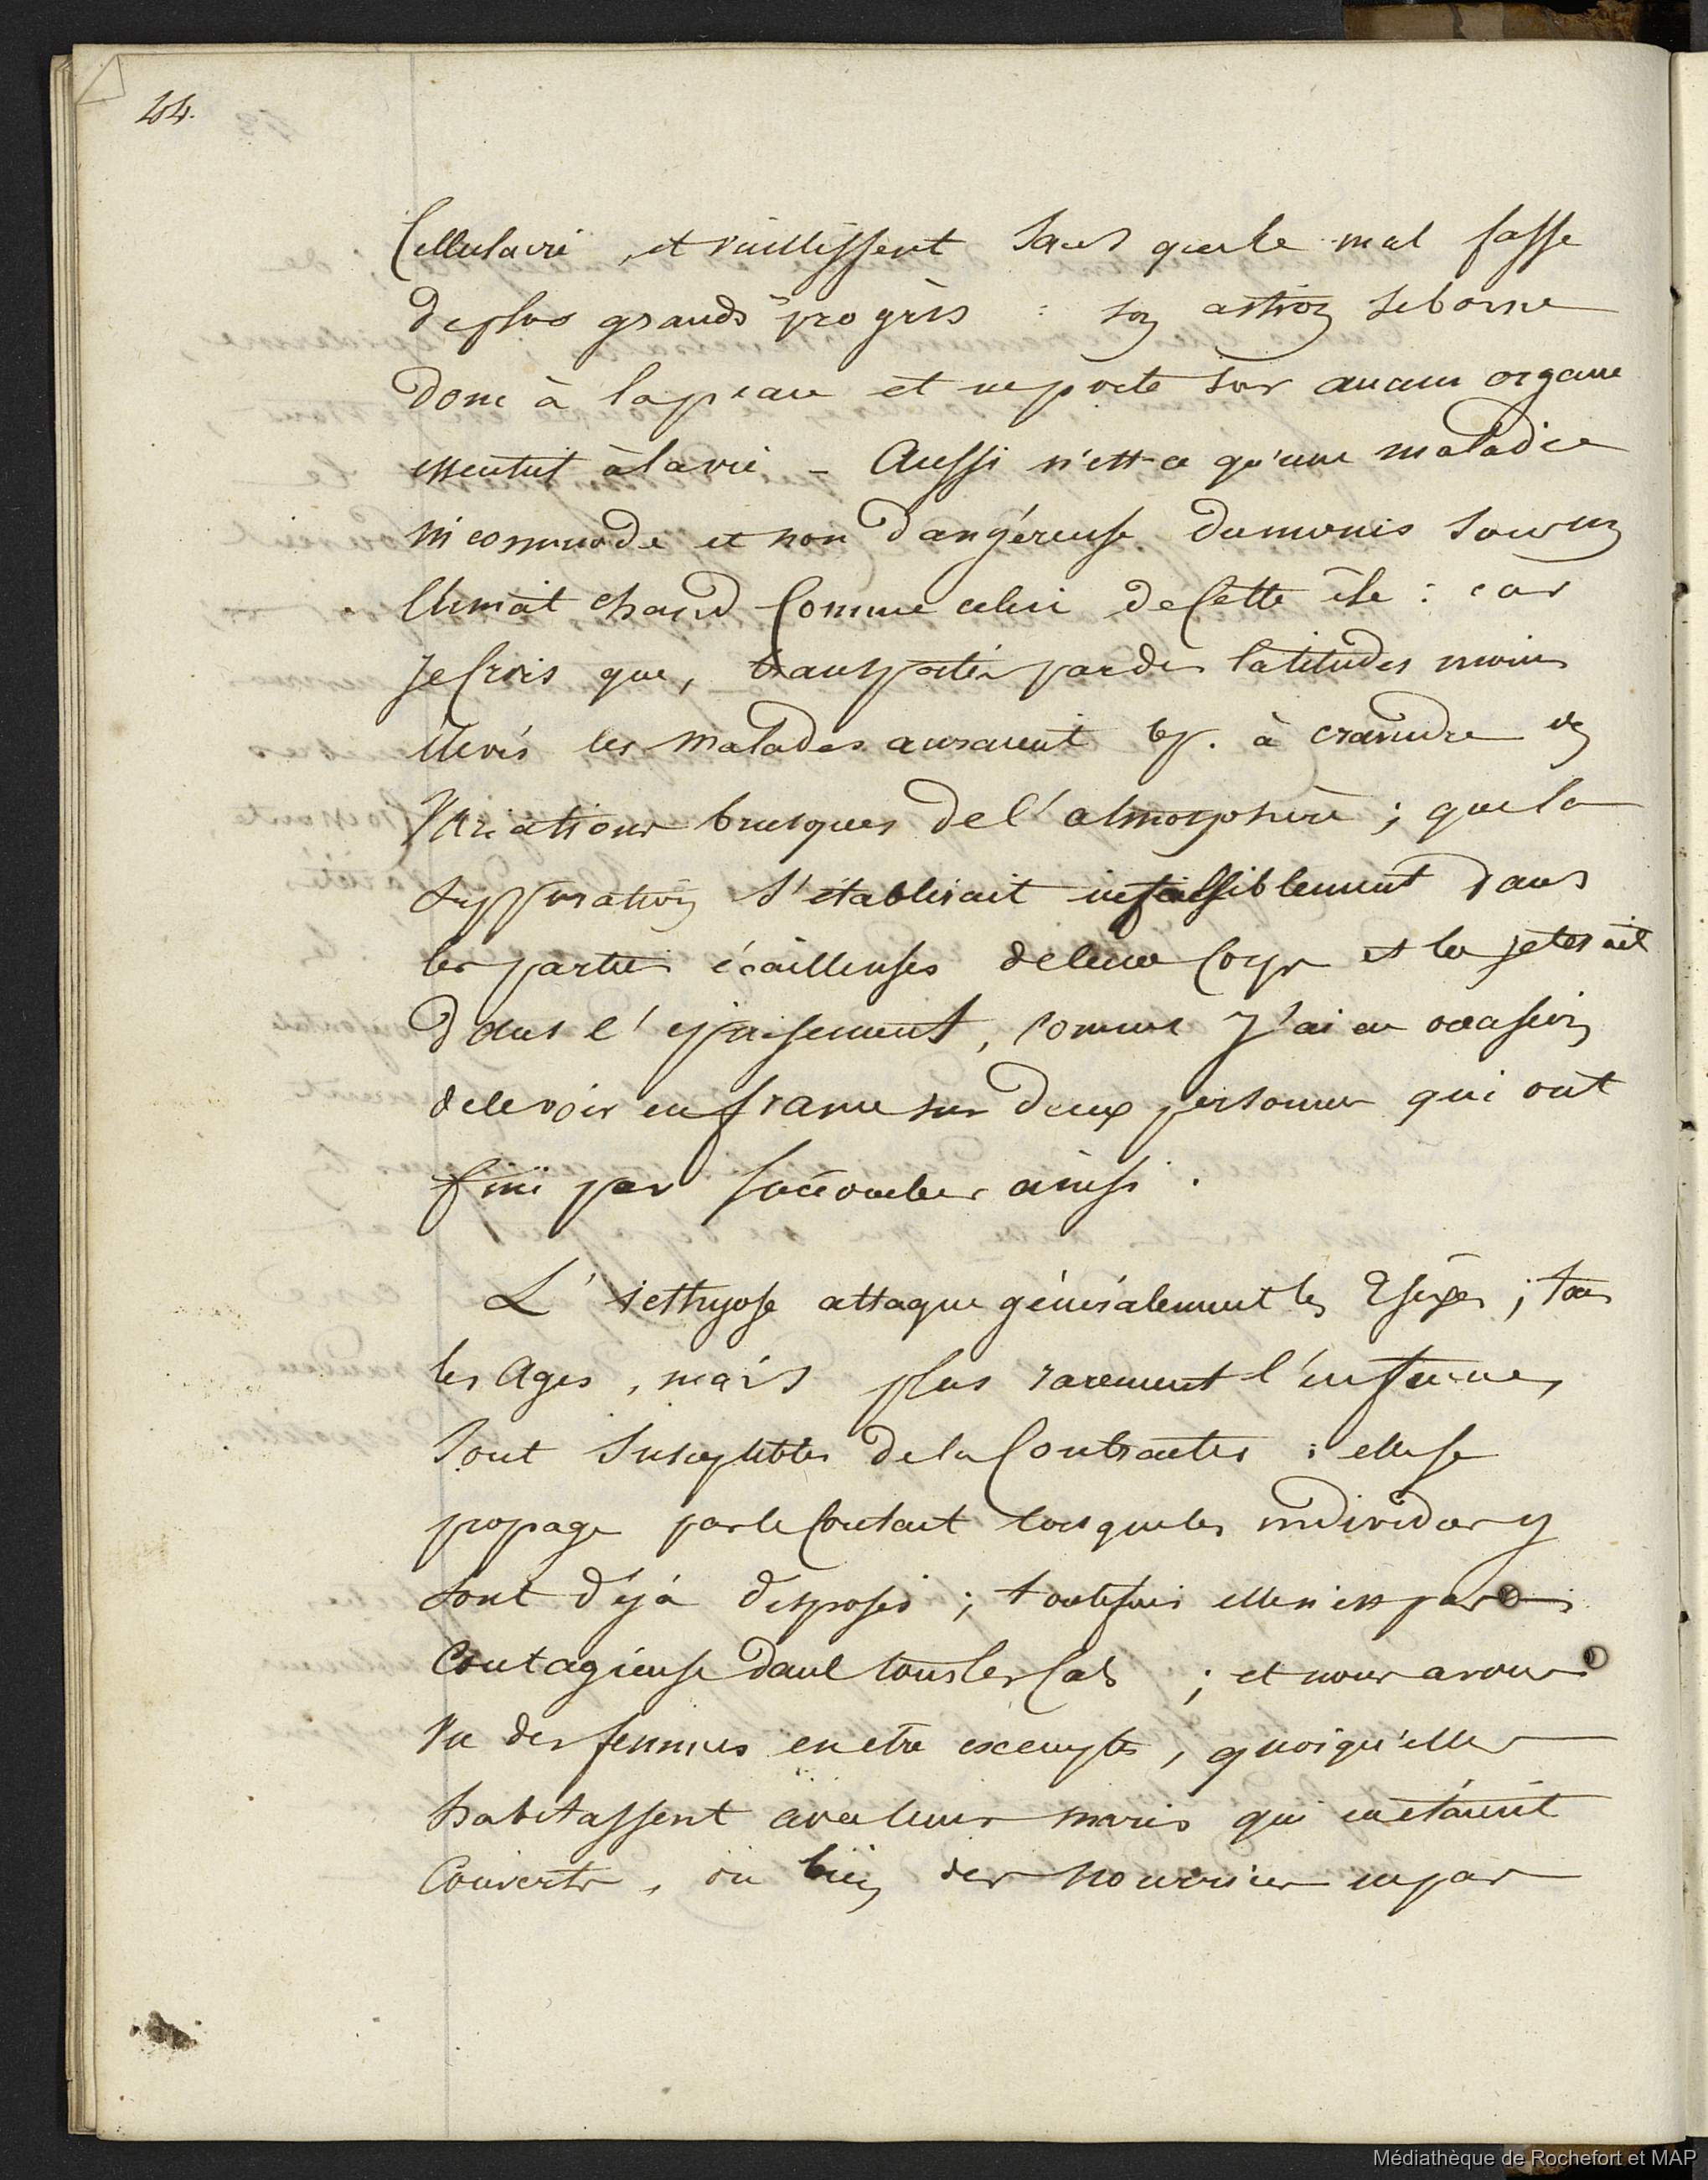 44.
Cellulaire, et viellissent sans que le mal fasse
de plus grands progrès : son action se borne
donc à la peau et ne porte sur aucun organe
essentiel à la vie - Aussi n'est-ce qu'une maladie
incommode et non dangéreuse du moins sous un
Climat chaud Comme celui de Cette ile : car
je Crois que, transportés par des latitudes moins
élevés les malades auraient bp. à craindre des
Variations brusques de l'atmosphère ; que la
suppuration s'établirait infailliblement dans
les parties écailleuses de leur Corps et les jeterait
dans l'épuisement, comme j'ai eu occasion
de le voir en france sur deux personnes qui ont
fini par succomber ainsi.
L'icthyose attaque généralement les 2 sexes ; tous
les ages, mais plus rarement l'enfance,
sont susceptibles de la Contracter : elle se
propage par le Contact lorsque les individus y
sont déjà disposés ; toutefois elle n'est pas
Contagieuse dans tous les Cas ; et nous avons
Vu des femmes en etre exemptes, quoiqu'elles
habitassent avec leurs maris qui en étaient
Couverts, ou bien des nourrices ne pas
Médiathèque de Rochefort et MAP